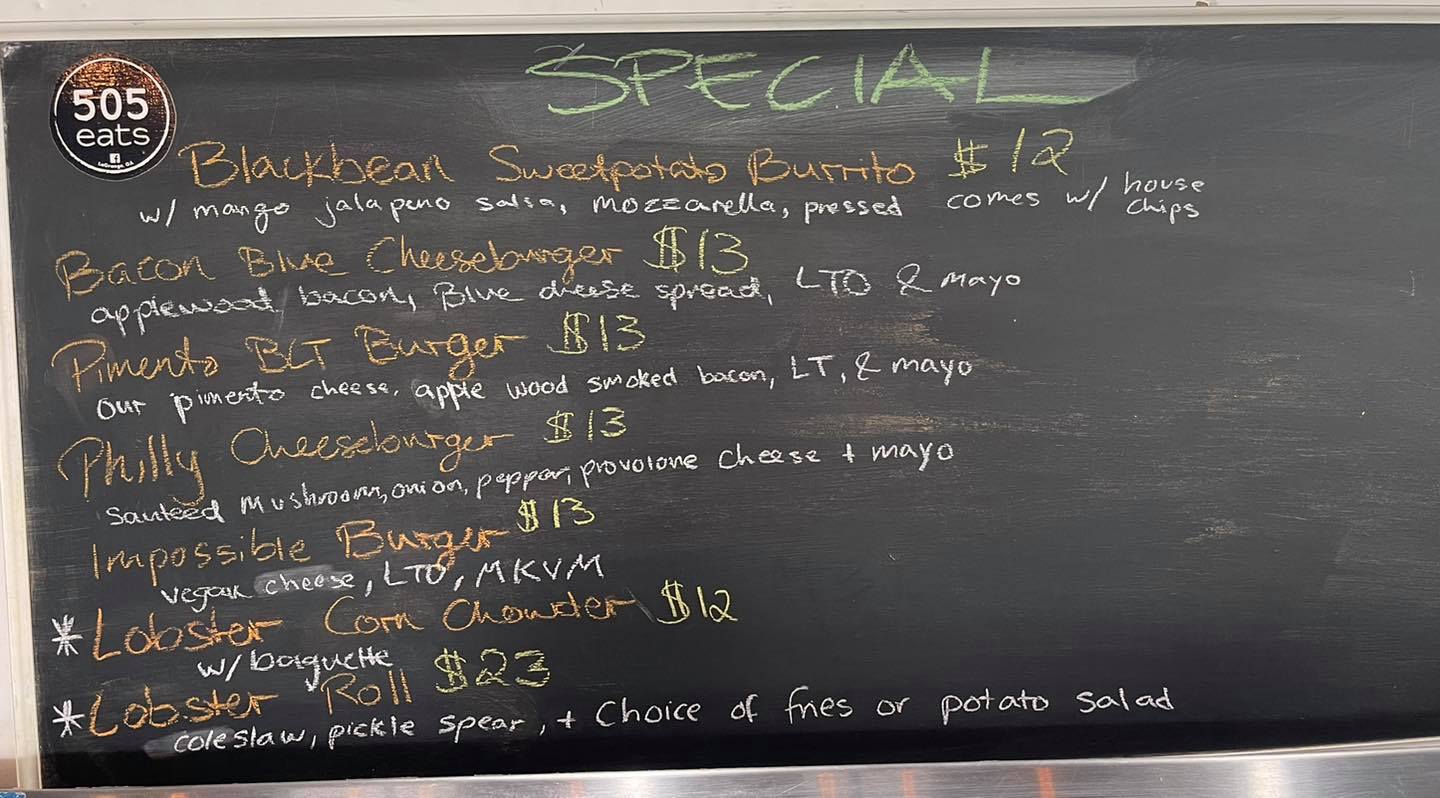 505
eats
LaGrange, GA
SPECIAL
Blackbean Sweetpotato Burrito $12
w/ mango jalapeno salsa, mozzarella, pressed comes w/ house chips
Bacon Blue Cheeseburger $13
applewood bacon, Blue cheese spread, LTO & mayo
Pimento BLT Burger $13
our pimento cheese, apple wood smoked bacon, LT, & mayo
Philly Cheeseburger $13
Sauteed mushroom, onion, pepper, provolone cheese + mayo
Impossible Burger $13
vegan cheese, LTO, MKVM
*Lobster Corn Chowder $12
w/ baguette
*Lobster Roll $23
coleslaw, pickle spear, + Choice of fries or potato salad